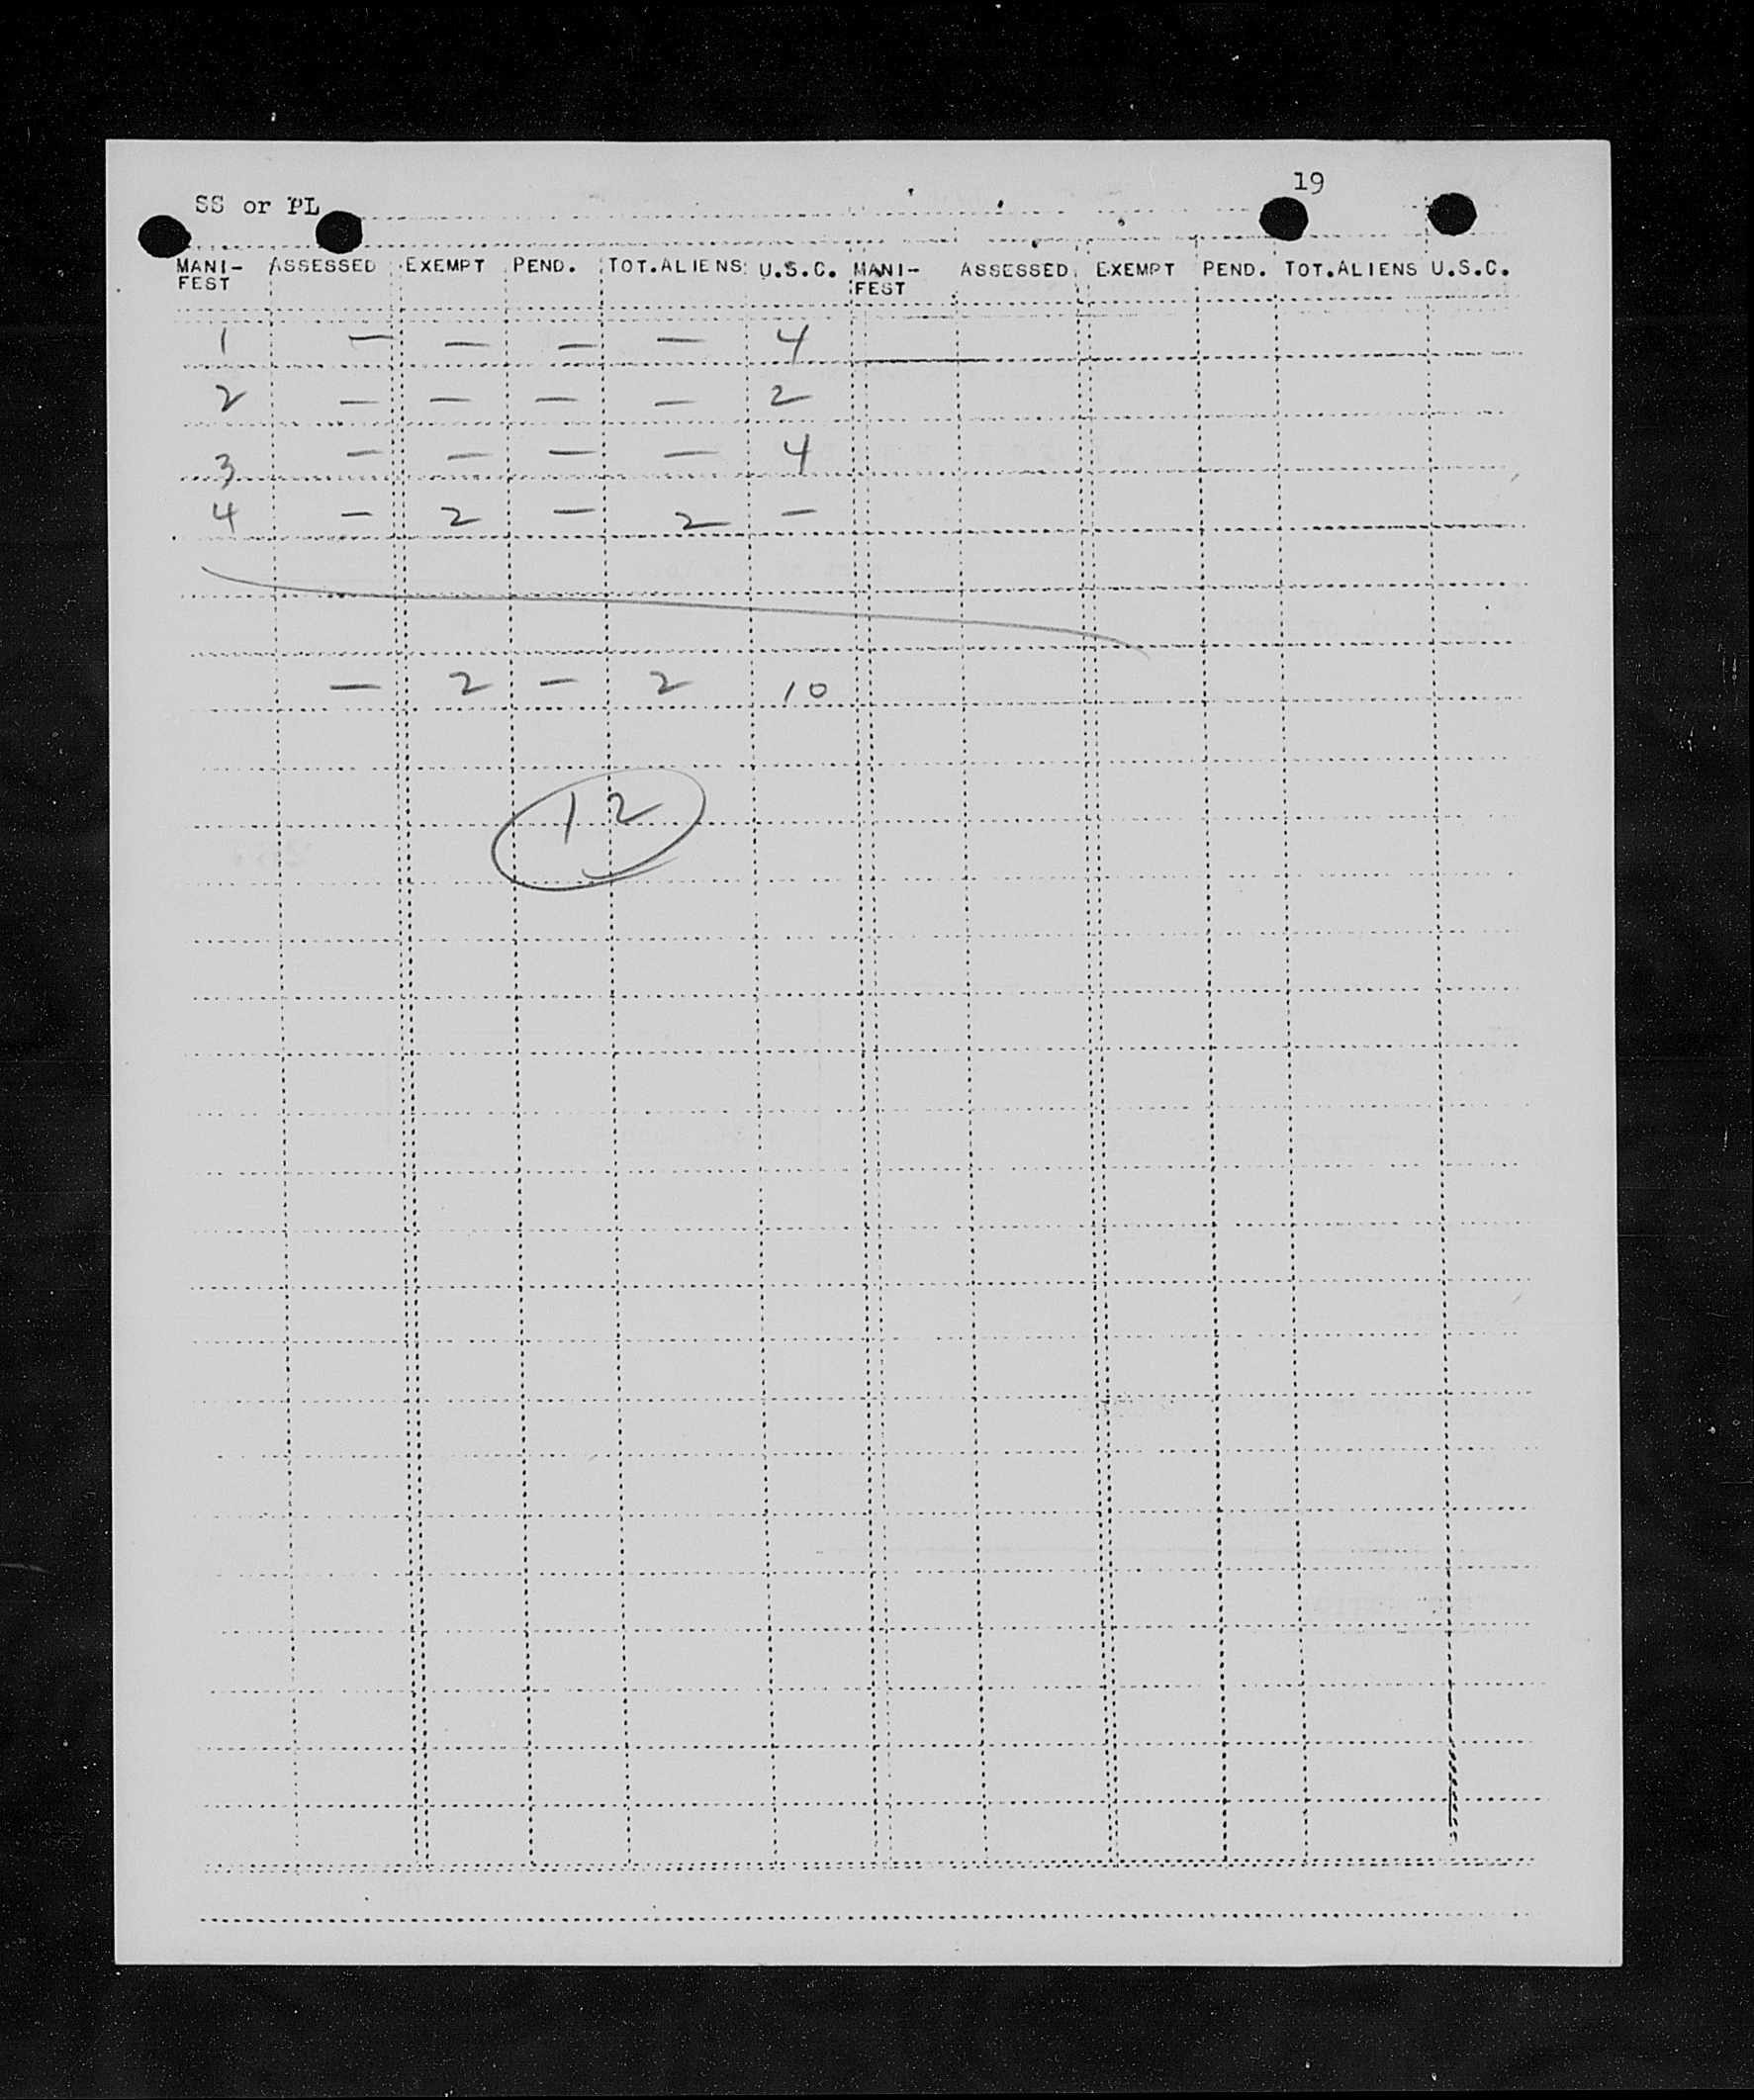 19
SS or PL
MANI- ASSESSED EXEMPT PEND. TOT.ALIENS U.S.C. MANI- ASSESSED EXEMPT PEND. TOT.ALIENS U.S.C.
FEST FEST
1 — — — — 4
2 — — — — 2
3 — — — — 4
4 — 2 — 2 —
— 2 — 2 10
12